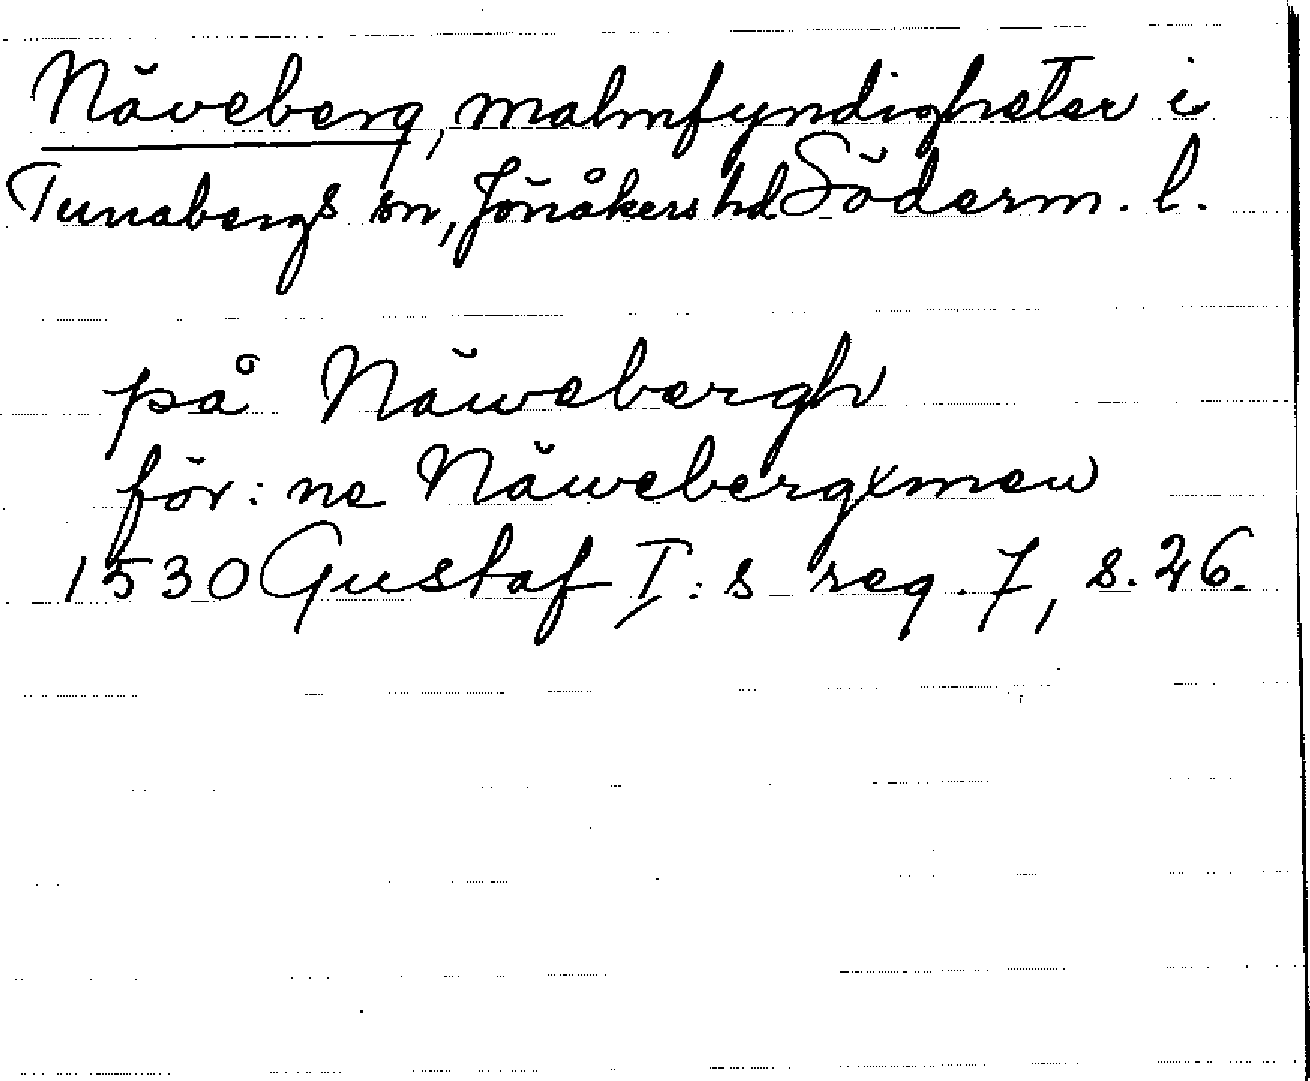 Näveberg, malmfyndigheter i
Tunabergs sn, Jönåkers hd Söderm. l.
på Näwebergh
för: ne Näwebergxmen
1530 Gustaf I:s reg. 7, s. 26.